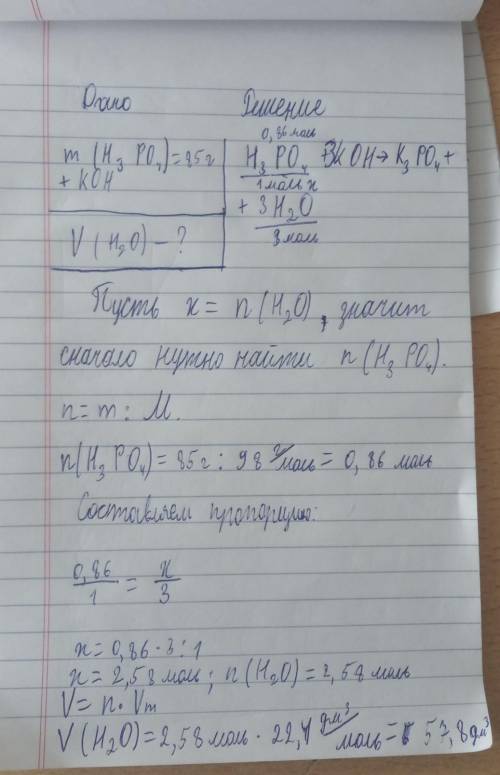 Дано Решение
0,86 моль
m (H₃PO₄)=85г H₃PO₄ + 3KOH → K₃PO₄ +
+ KOH 1 моль x
+ 3H₂O
V (H₂O) – ? 3 моль
Пусть x = n (H₂O), значит
сначало нужно найти n (H₃PO₄).
n = m : M.
n(H₃PO₄) = 85г : 98 г/моль = 0,86 моль
Составляем пропорцию:
0,86/1 = x/3
x = 0,86 · 3 : 1
x = 2,58 моль; n(H₂O) = 2,58 моль
V = n · Vm
V (H₂O) = 2,58 моль · 22,4 дм³/моль = 57,8 дм³